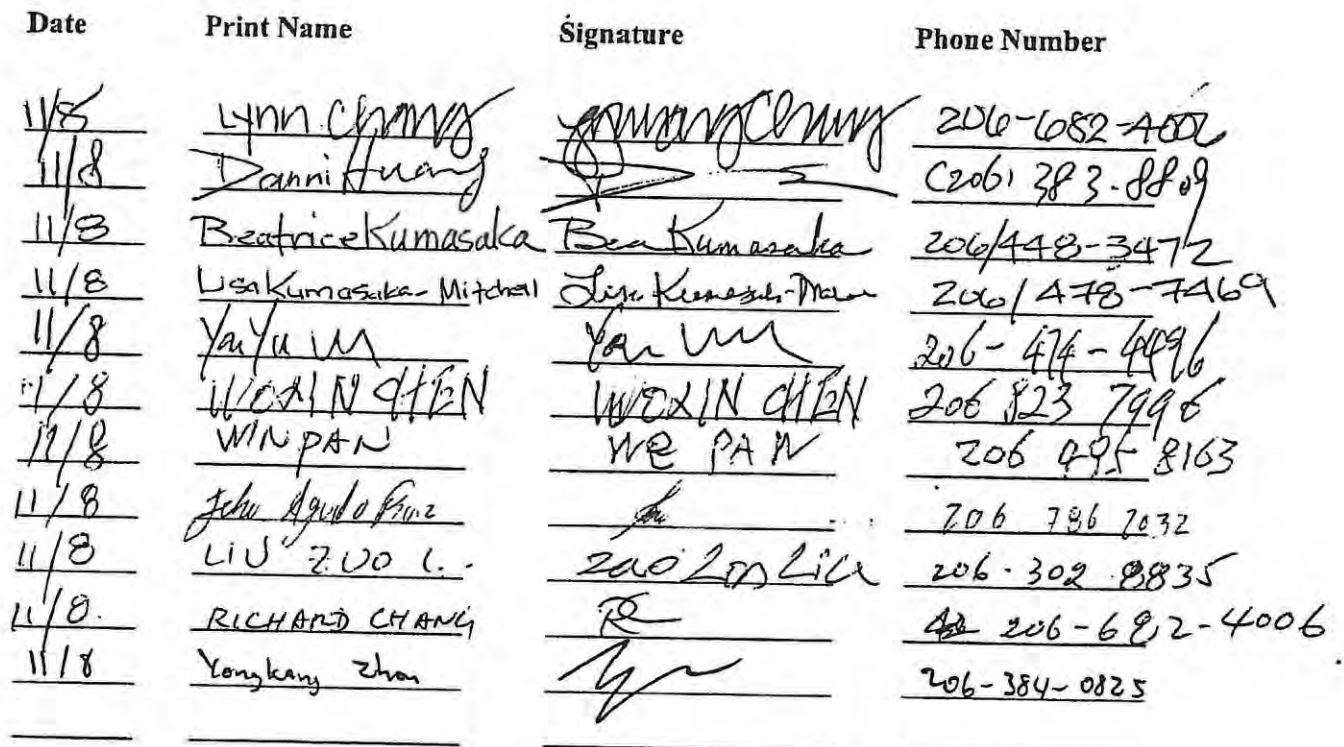 Date Print Name Signature Phone Number
11/8 Lynn Chang 206-682-4006
11/8 Danni Huang (206) 383-8809
11/8 Beatrice Kumasaka Bea Kumasaka 206/448-3472
11/8 Lisa Kumasaka-Mitchell 206/478-7469
11/8 Yan Yu Yan 206-474-4496
11/8 CHEN CHEN 206 823 7996
11/8 WIN PAN PAN 206 495 8163
11/8 206 786 7032
11/8 LIU ZUO L.. 206-302 8835
11/8. RICHARD CHANG 206-682-4006
11/8 Yongkang Zhou 206-384-0825